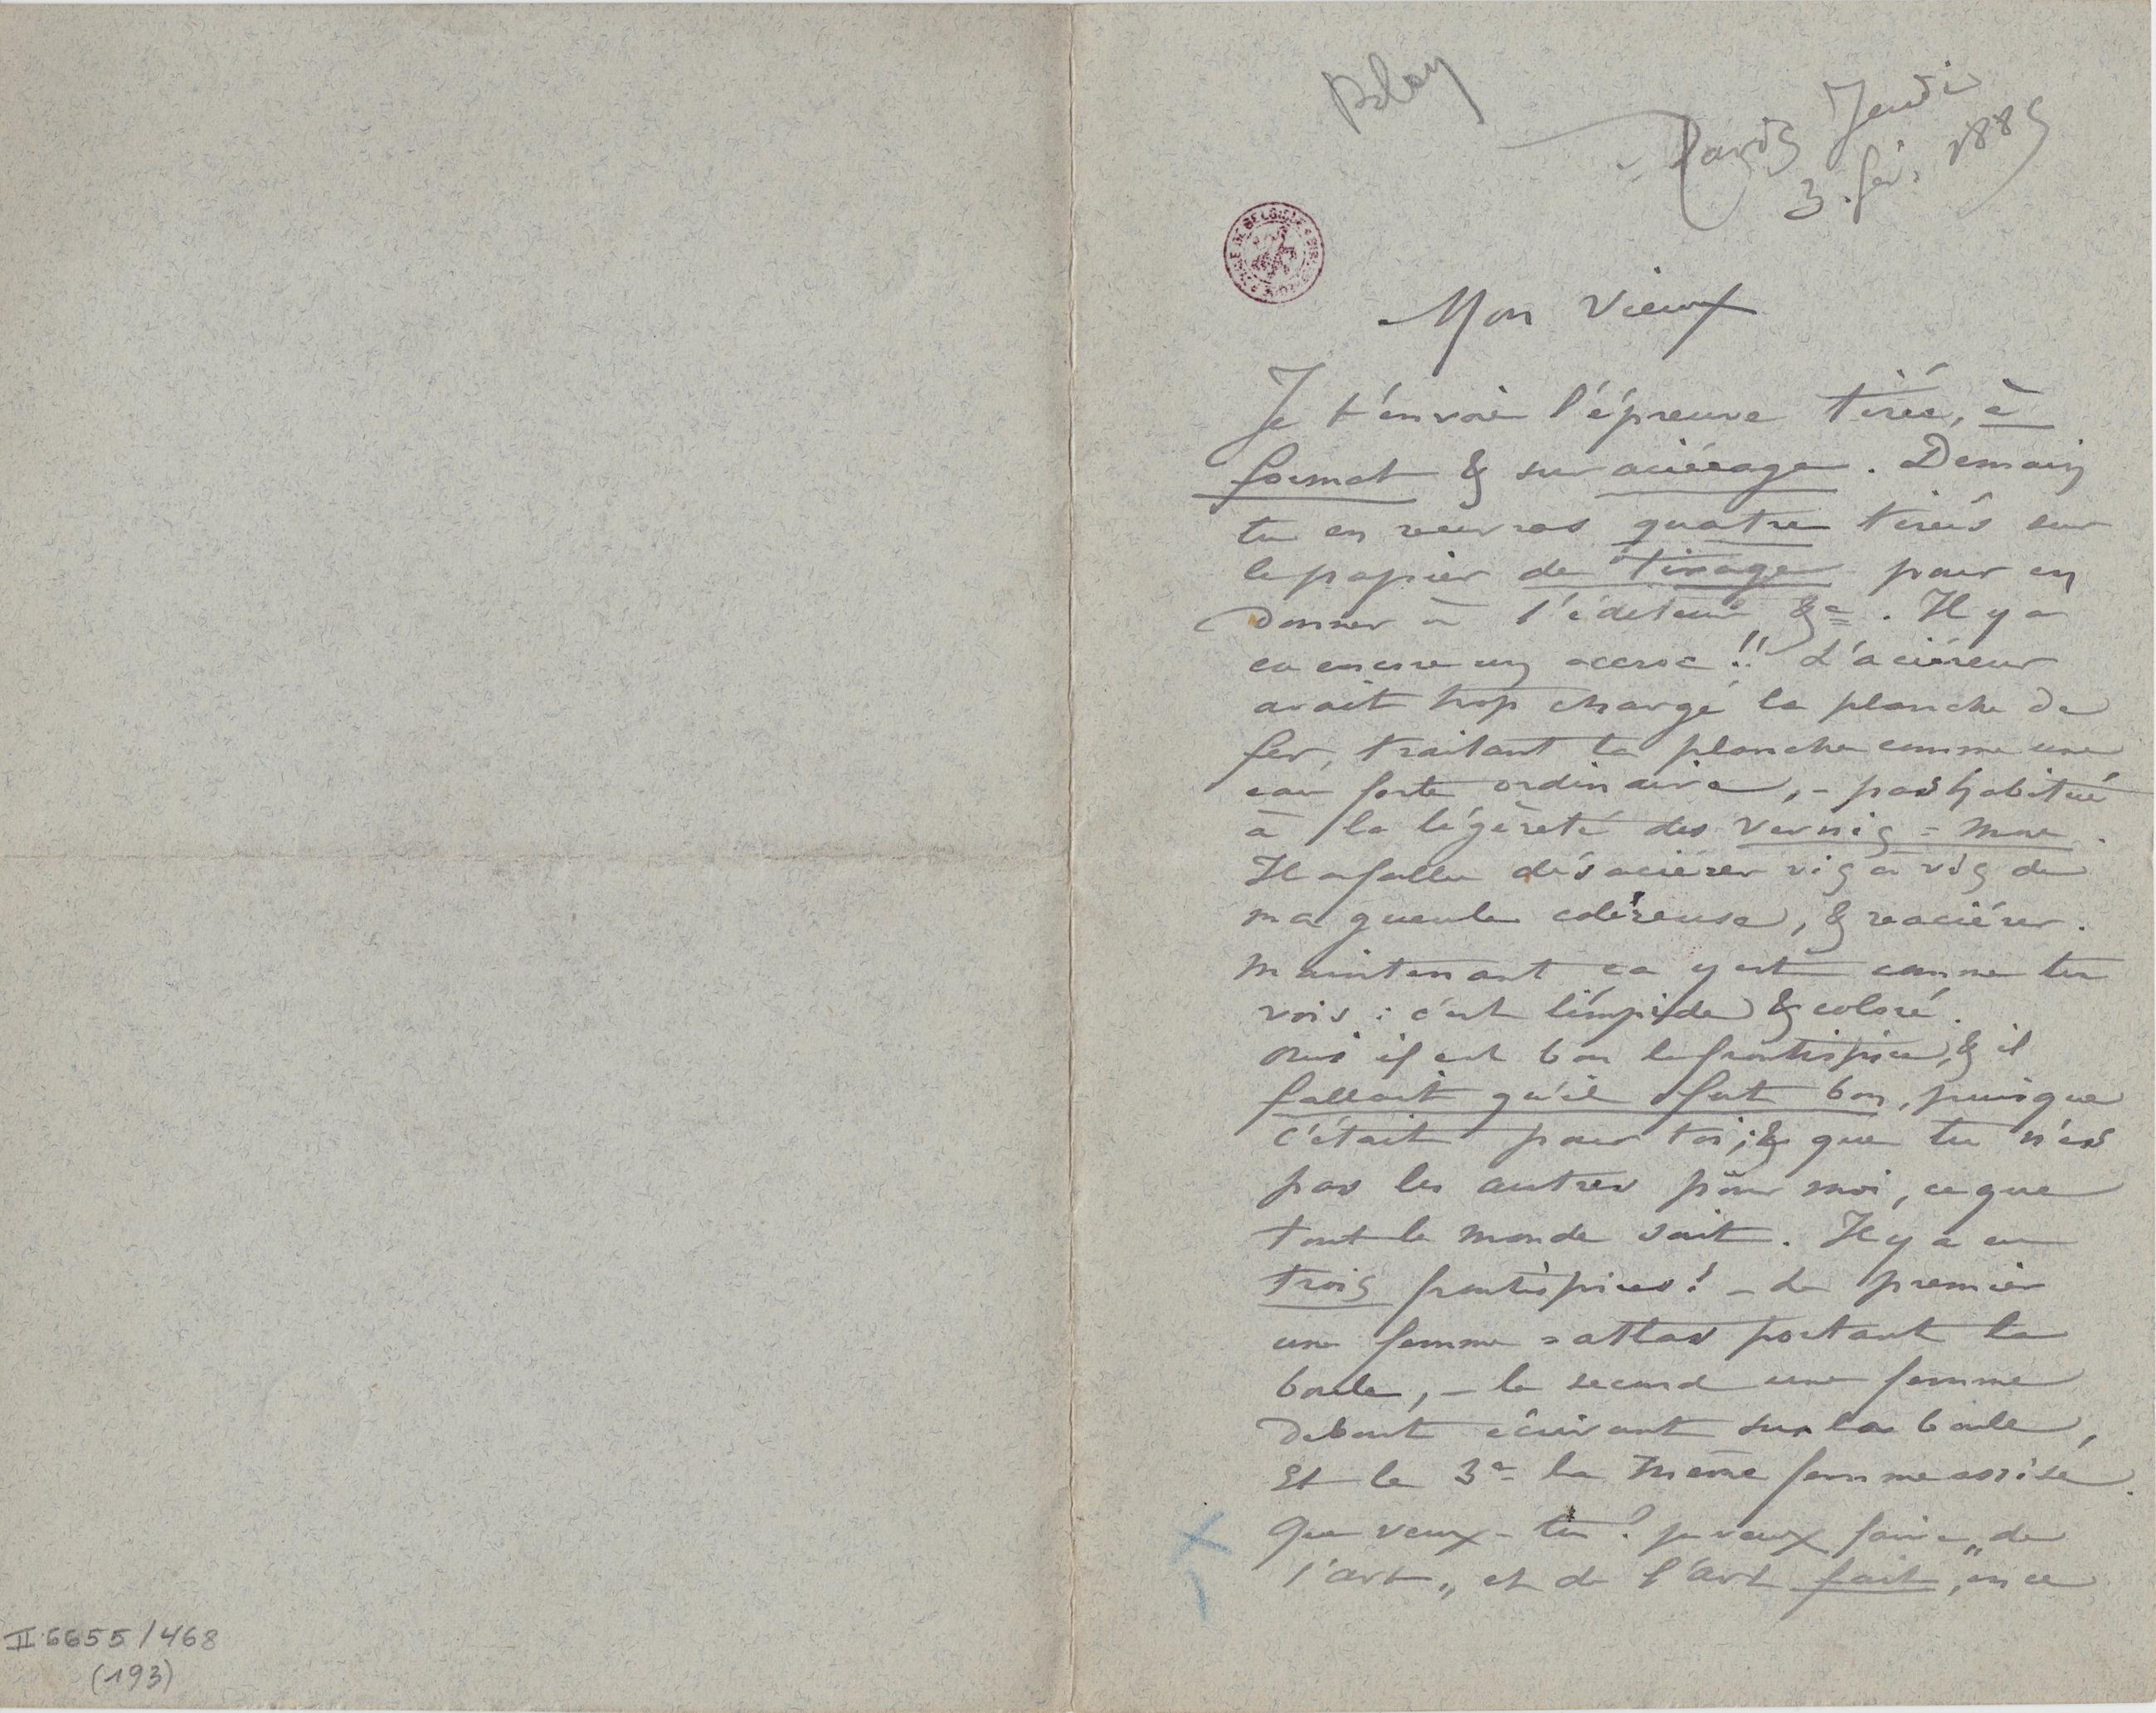 Blay
Paris Jeudi
3. fév. 1885
Mon Vieux
Je t'envoie l'épreuve tirée, à
format & sur aciérage. Demain
tu en recevras quatre tirées sur
le papier de tirage pour en
donner à l'éditeur &a. Il y a
eu encore un accroc!! L'aciéreur
avait trop chargé la planche de
fer, traitant la planche comme une
eau forte ordinaire, – pas habitué
à la légèreté des vernis = mou.
Il a fallu désaciérer vis à vis de
ma gueule coléreuse, & reaciérer.
Maintenant ça y est comme tu
vois : c'est limpide & coloré.
Oui il est bon le frontispice, & il
fallait qu'il fut bon, puisque
c'était pour toi, & que tu n'es
pas les autres pour moi, ce que
tout le monde sait. Il y a eu
trois frontispices! – Le premier
une femme = atlas portant la
boule, – le second une femme
debout écrivant sur la boule,
Et le 3e la même femme assise.
Que veux-tu? je veux faire „de
l'art„ et de l'art fait, en ce
II 6655/468
(193)